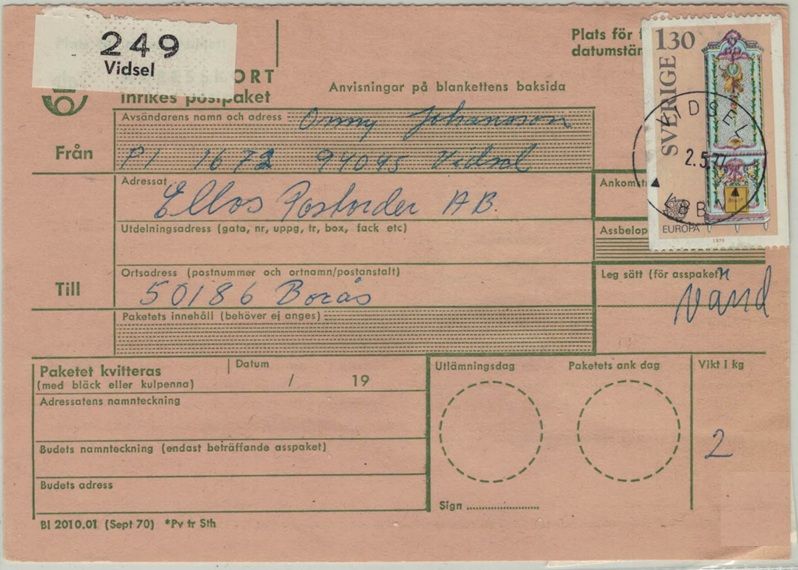 249
Vidsel
ORT
Inrikes postpaket
Anvisningar på blankettens baksida
Plats för f
datumstäm
130
SVERIGE
EUROPA
1976
VIDSEL
2.5.77
Från
Avsändarens namn och adress Onny Johansson
Pl 1672 94045 Vidsel
Adressat
Ellos Postorder AB.
Ankomst
Utdelningsadress (gata, nr, uppg, tr, box, fack etc)
Assbelop
Till
Ortsadress (postnummer och ortnamn/postanstalt)
50186 Borås
Leg sätt (för asspaket)
Vänd
Paketets innehåll (behöver ej anges)
Paketet kvitteras
(med bläck eller kulpenna)
Datum
/ 19
Utlämningsdag
Paketets ank dag
Vikt i kg
2
Adressatens namnteckning
Budets namnteckning (endast beträffande asspaket)
Budets adress
Sign
Bl 2010.01 (Sept 70) *Pv tr Sth